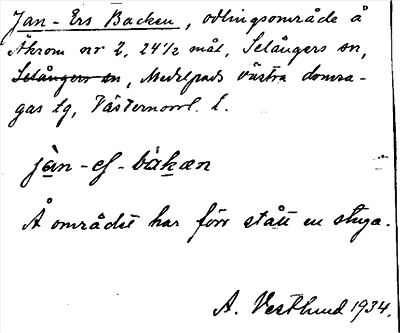 Jan-Ers Backen, odlingsområde å
Åkrom nr 2, 24 1/2 mål, Selångers sn,
Selångers sn, Medelpads västra domsa-
gas tg, Västernorrl. l.
jàn-eʃ-bàkæn
Å området har förr stått en stuga.
A. Vestlund 1934.